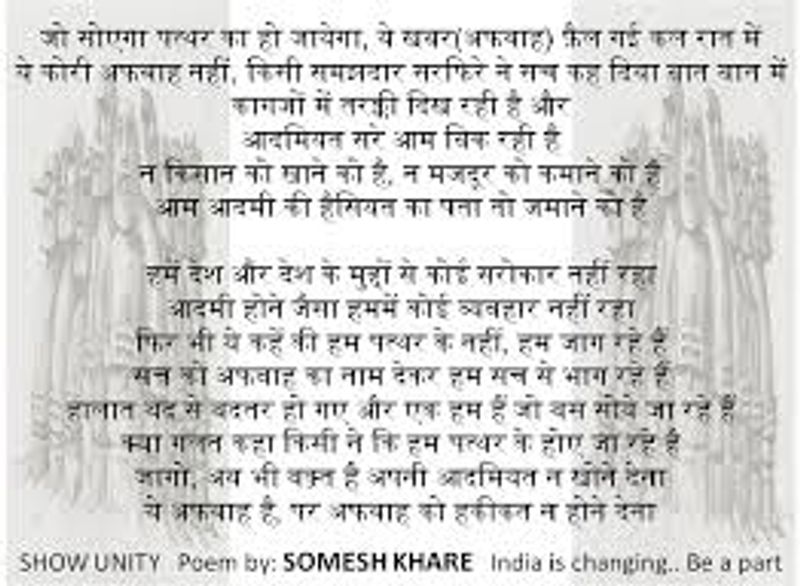 जो सोएगा पत्थर का हो जायेगा, ये खबर(अफवाह) फ़ैल गई कल रात में
ये कोरी अफवाह नहीं, किसी समझदार सरफिरे ने सच कह दिया बात बात में
कागजों में तरक्की दिख रही है और
आदमियत सरे आम बिक रही है
न किसान को खाने को है, न मजदूर को कमाने को है
आम आदमी की हैसियत का पता तो जमाने को है
हमें देश और देश के मुद्दों से कोई सरोकार नहीं रहा
आदमी होने जैसा हममें कोई व्यवहार नहीं रहा
फिर भी ये कहें की हम पत्थर के नहीं, हम जाग रहे हैं
सच को अफवाह का नाम देकर हम सच से भाग रहे हैं
हालात बद से बदतर हो गए और एक हम हैं जो बस सोये जा रहे हैं
क्या गलत कहा किसी ने कि हम पत्थर के होए जा रहे हैं
जागो, अब भी वक़्त है अपनी आदमियत न खोने देना
ये अफवाह है, पर अफवाह को हकीकत न होने देना
SHOW UNITY Poem by: SOMESH KHARE India is changing.. Be a part